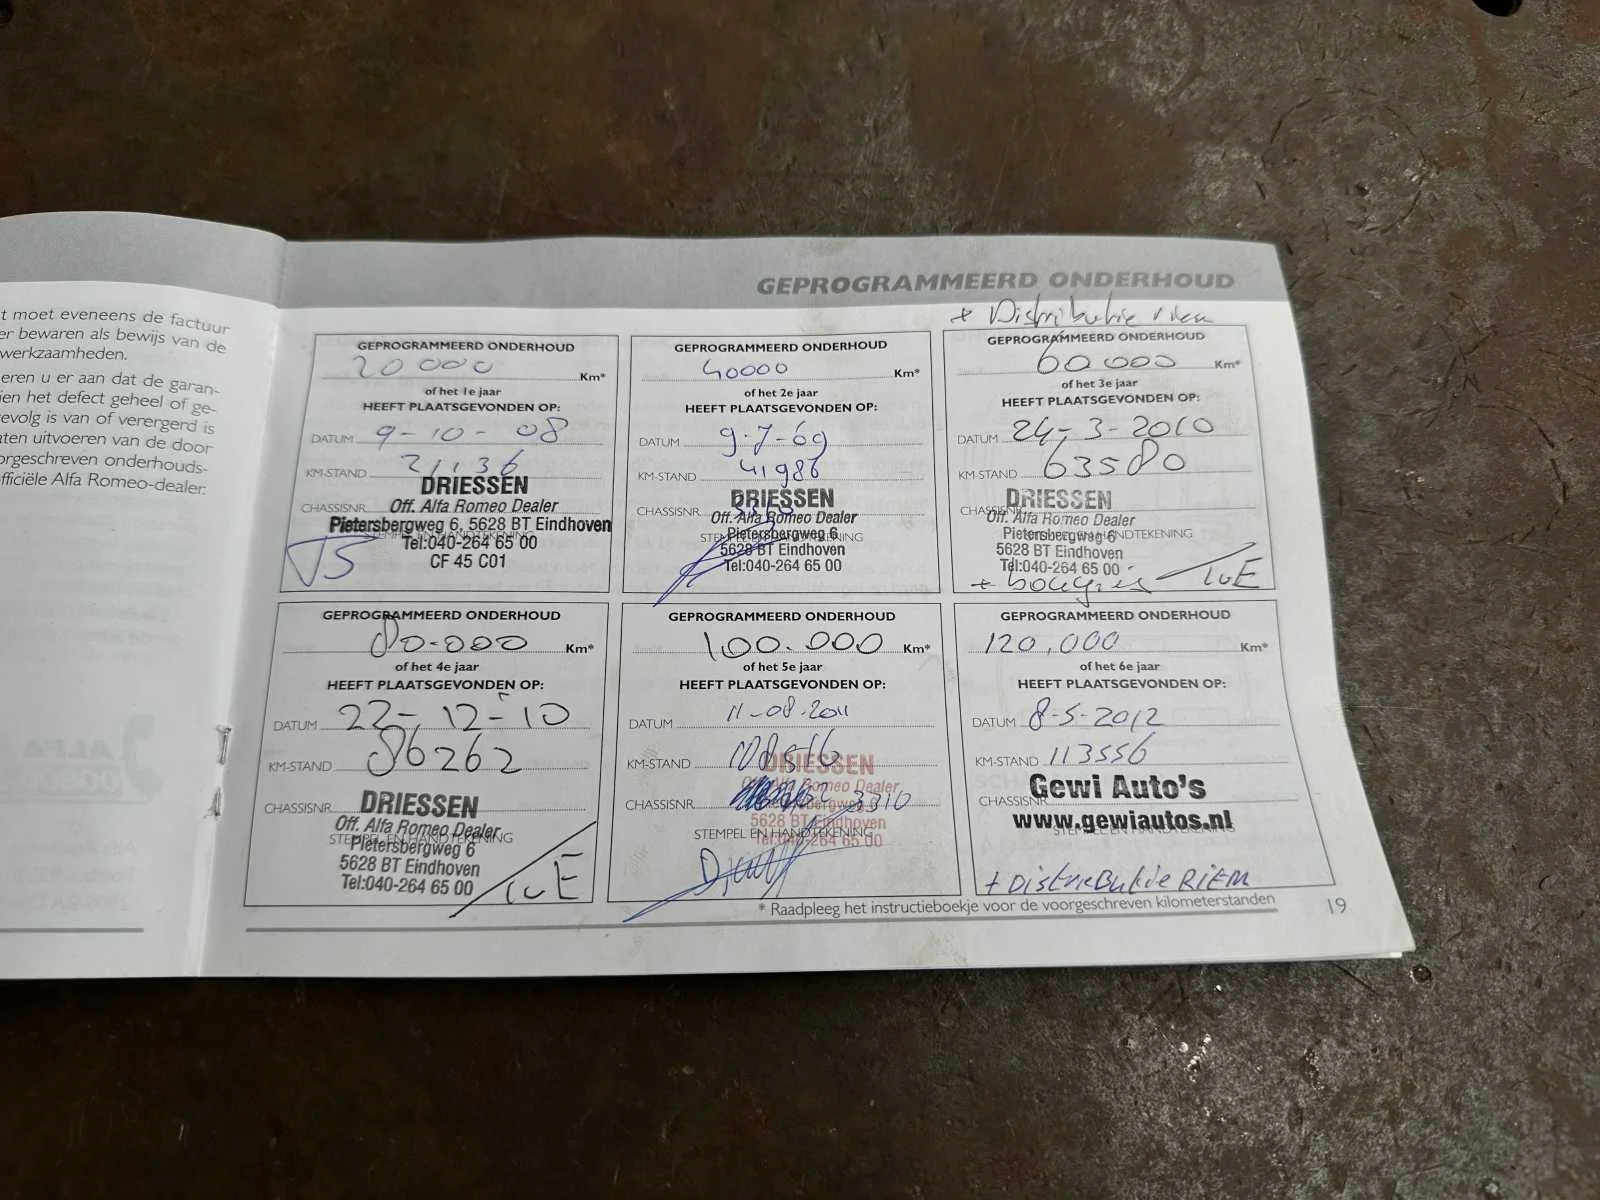 t moet eveneens de factuur
er bewaren als bewijs van de
werkzaamheden.
eren u er aan dat de garan-
ien het defect geheel of ge-
evolg is van of verergerd is
aten uitvoeren van de door
orgeschreven onderhouds-
fficiële Alfa Romeo-dealer.
GEPROGRAMMEERD ONDERHOUD
GEPROGRAMMEERD ONDERHOUD
20000 Km*
of het 1e jaar
HEEFT PLAATSGEVONDEN OP:
DATUM 9-10-08
KM-STAND 21136
CHASSISNR.
DRIESSEN
Off. Alfa Romeo Dealer
Pietersbergweg 6, 5628 BT Eindhoven
STEMPEL EN HANDTEKENING
Tel:040-264 65 00
CF 45 C01
GEPROGRAMMEERD ONDERHOUD
40000 Km*
of het 2e jaar
HEEFT PLAATSGEVONDEN OP:
DATUM 9-7-09
KM-STAND 41986
CHASSISNR.
DRIESSEN
Off. Alfa Romeo Dealer
Pietersbergweg 6
5628 BT Eindhoven
Tel:040-264 65 00
+ Distributie riem
GEPROGRAMMEERD ONDERHOUD
60000 Km*
of het 3e jaar
HEEFT PLAATSGEVONDEN OP:
DATUM 24-3-2010
KM-STAND 63580
CHASSISNR.
DRIESSEN
Off. Alfa Romeo Dealer
Pietersbergweg 6
STEMPEL EN HANDTEKENING
5628 BT Eindhoven
Tel:040-264 65 00
+ bougies
GEPROGRAMMEERD ONDERHOUD
80.000 Km*
of het 4e jaar
HEEFT PLAATSGEVONDEN OP:
DATUM 22-12-10
KM-STAND 86262
CHASSISNR.
DRIESSEN
Off. Alfa Romeo Dealer
STEMPEL EN HANDTEKENING
Pietersbergweg 6
5628 BT Eindhoven
Tel:040-264 65 00
GEPROGRAMMEERD ONDERHOUD
100.000 Km*
of het 5e jaar
HEEFT PLAATSGEVONDEN OP:
DATUM 11-08-2011
KM-STAND
DRIESSEN
Off. Alfa Romeo Dealer
CHASSISNR. 3310
Pietersbergweg 6
5628 BT Eindhoven
STEMPEL EN HANDTEKENING
Tel:040-264 65 00
GEPROGRAMMEERD ONDERHOUD
120,000 Km*
of het 6e jaar
HEEFT PLAATSGEVONDEN OP:
DATUM 8-5-2012
KM-STAND 113556
Gewi Auto's
CHASSISNR.
www.gewiautos.nl
STEMPEL EN HANDTEKENING
+ DistrieButie RIEM
* Raadpleeg het instructieboekje voor de voorgeschreven kilometerstanden
19